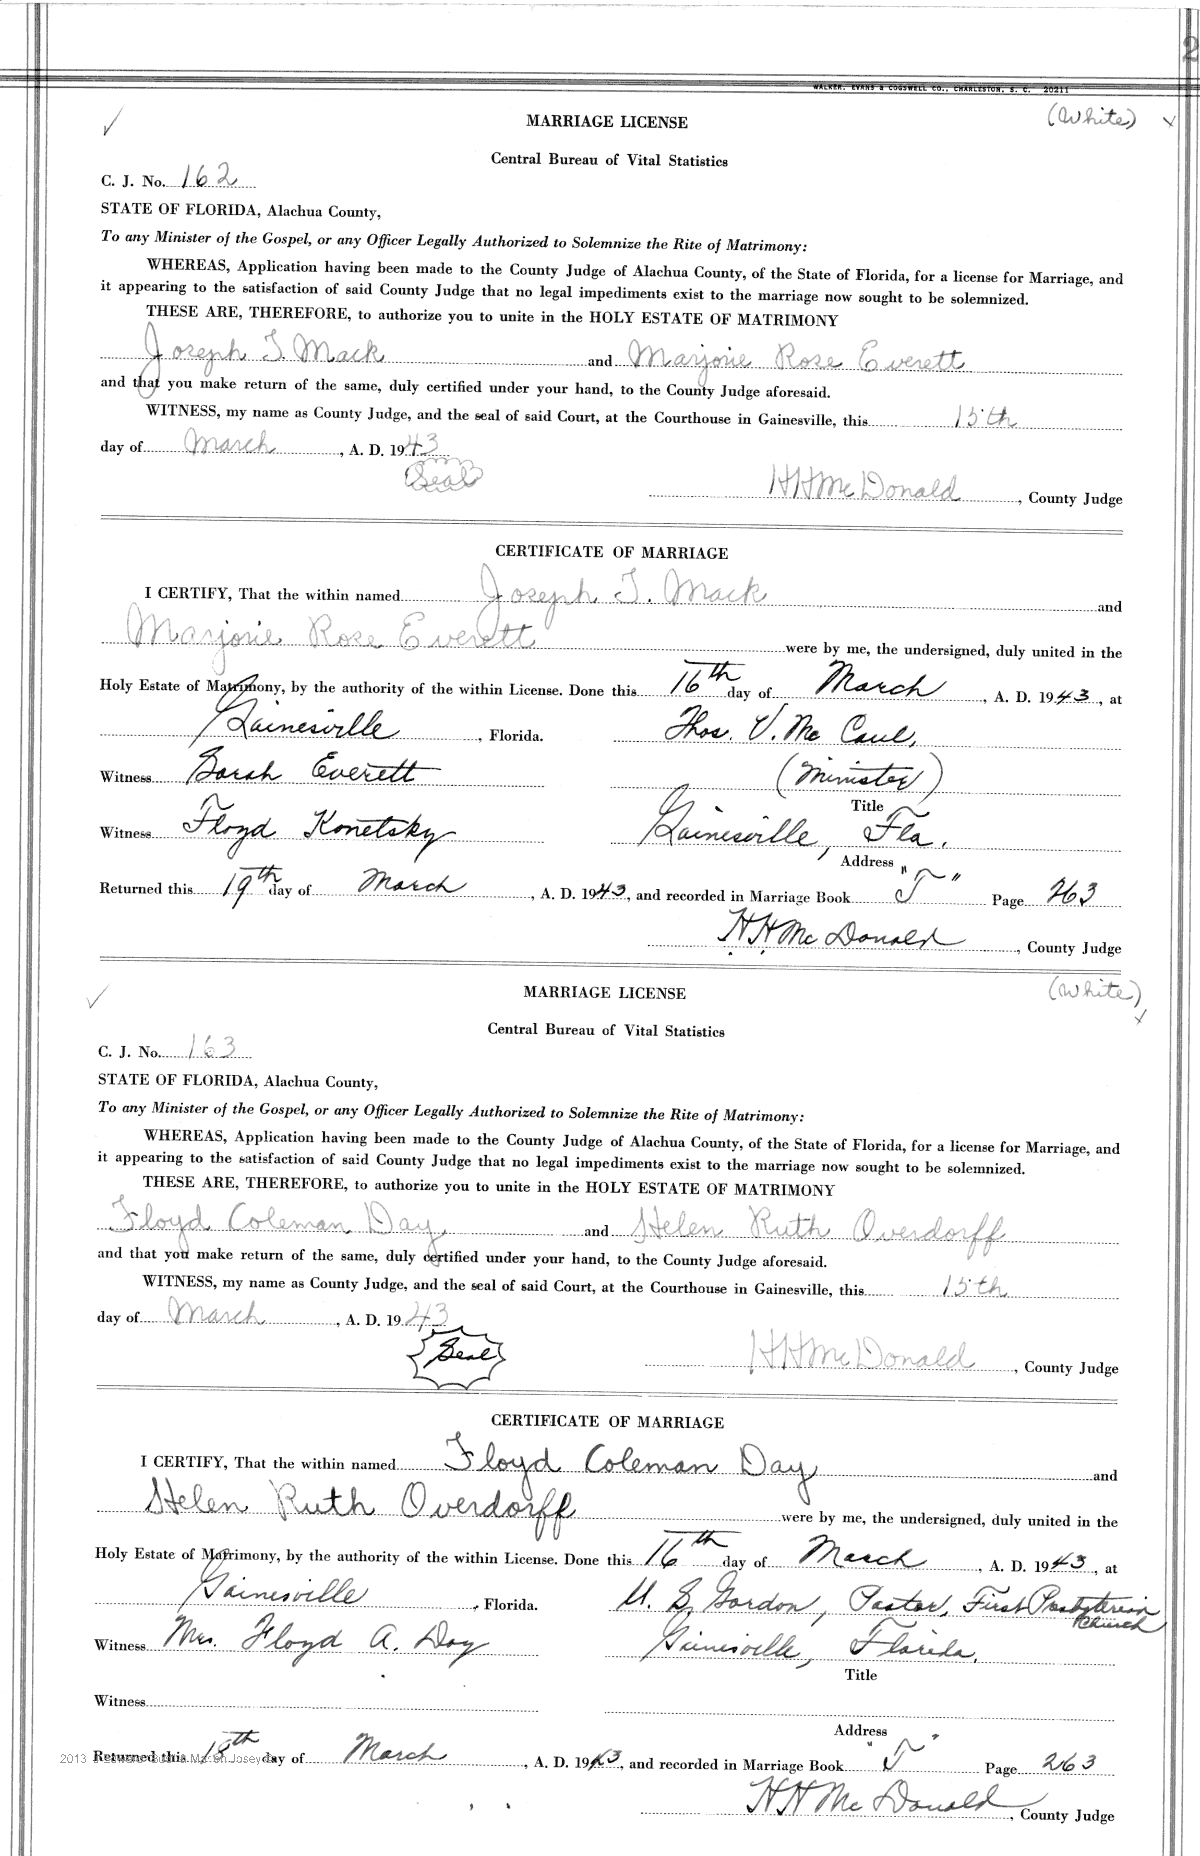 2
WALKER, EVANS & COGSWELL CO., CHARLESTON, S. C. 20211
(White)
MARRIAGE LICENSE
Central Bureau of Vital Statistics
C. J. No. 162
STATE OF FLORIDA, Alachua County,
To any Minister of the Gospel, or any Officer Legally Authorized to Solemnize the Rite of Matrimony:
WHEREAS, Application having been made to the County Judge of Alachua County, of the State of Florida, for a license for Marriage, and
it appearing to the satisfaction of said County Judge that no legal impediments exist to the marriage now sought to be solemnized.
THESE ARE, THEREFORE, to authorize you to unite in the HOLY ESTATE OF MATRIMONY
Joseph T. Mack and Marjorie Rose Everett
and that you make return of the same, duly certified under your hand, to the County Judge aforesaid.
WITNESS, my name as County Judge, and the seal of said Court, at the Courthouse in Gainesville, this 15th
day of March, A. D. 1943
(Seal)
H H McDonald, County Judge
CERTIFICATE OF MARRIAGE
I CERTIFY, That the within named Joseph T. Mack and
Marjorie Rose Everett were by me, the undersigned, duly united in the
Holy Estate of Matrimony, by the authority of the within License. Done this 16th day of March, A. D. 1943, at
Gainesville, Florida. Thos. V. Mc Caul,
Witness Sarah Everett (Minister)
Title
Witness Floyd Konetsky Gainesville, Fla.
Address
Returned this 19th day of March, A. D. 1943, and recorded in Marriage Book "T" Page 263
H H Mc Donald, County Judge
(White)
MARRIAGE LICENSE
Central Bureau of Vital Statistics
C. J. No. 163
STATE OF FLORIDA, Alachua County,
To any Minister of the Gospel, or any Officer Legally Authorized to Solemnize the Rite of Matrimony:
WHEREAS, Application having been made to the County Judge of Alachua County, of the State of Florida, for a license for Marriage, and
it appearing to the satisfaction of said County Judge that no legal impediments exist to the marriage now sought to be solemnized.
THESE ARE, THEREFORE, to authorize you to unite in the HOLY ESTATE OF MATRIMONY
Floyd Coleman Day and Helen Ruth Overdorff
and that you make return of the same, duly certified under your hand, to the County Judge aforesaid.
WITNESS, my name as County Judge, and the seal of said Court, at the Courthouse in Gainesville, this 15th
day of March, A. D. 1943
Seal
H H McDonald, County Judge
CERTIFICATE OF MARRIAGE
I CERTIFY, That the within named Floyd Coleman Day and
Helen Ruth Overdorff were by me, the undersigned, duly united in the
Holy Estate of Matrimony, by the authority of the within License. Done this 16th day of March, A. D. 1943, at
Gainesville, Florida. U. S. Gordon, Pastor, First Presbyterian Church
Witness Mrs. Floyd A. Day Gainesville, Florida.
Title
Witness
Address
2013
Returned this 18th day of March, A. D. 1943, and recorded in Marriage Book "T" Page 263
H H Mc Donald, County Judge